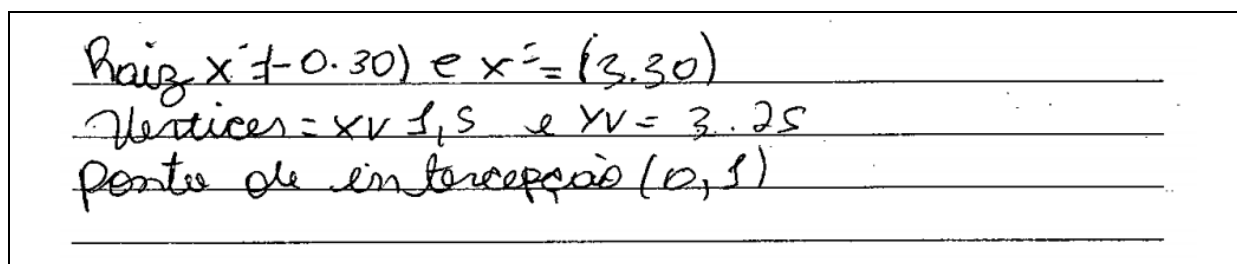 Raiz x'=(-0.30) e x''=(3.30)
Vertices = xv 1,5 e YV = 3.25
ponto de intercepção (0,1)